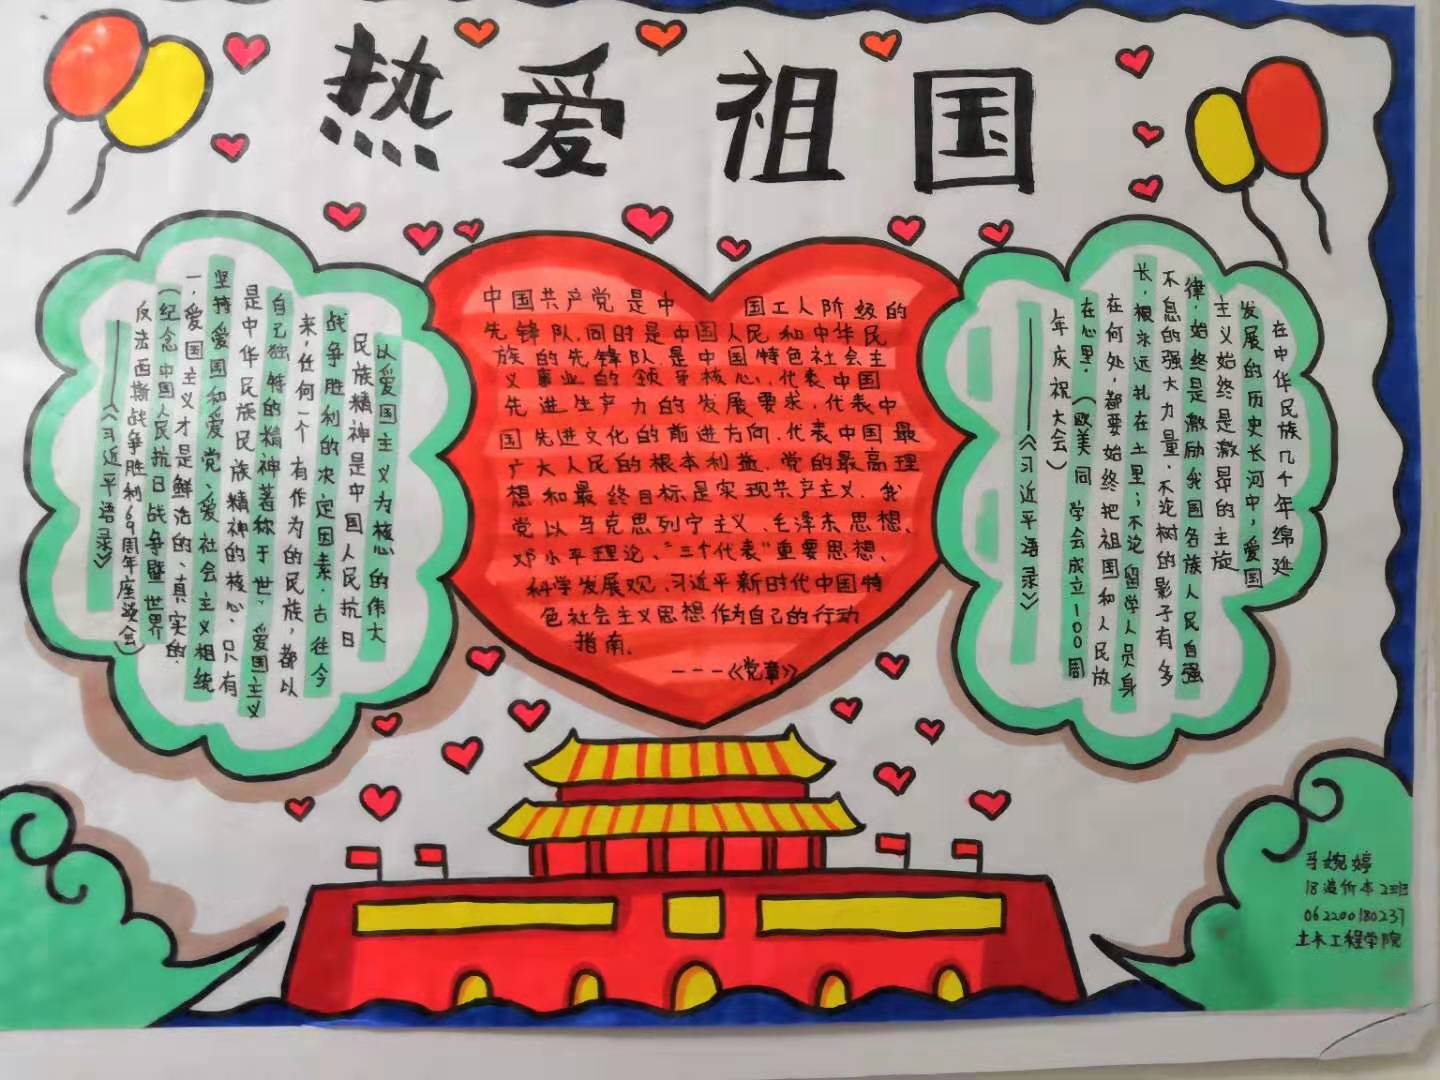 热爱祖国
以爱国主义为核心的伟大
民族精神是中国人民抗日
战争胜利的决定因素.古往今
来,任何一个有作为的民族,都以
自己独特的精神著称于世.爱国主义
是中华民族民族精神的核心.只有
坚持爱国和爱党、爱社会主义相统
一,爱国主义才是鲜活的、真实的.
(纪念中国人民抗日战争暨世界
反法西斯战争胜利69周年座谈会)
——《习近平语录》
中国共产党是中 国工人阶级的
先锋队,同时是中国人民和中华民
族的先锋队,是中国特色社会主
义事业的领导核心,代表中国
先进生产力的发展要求,代表中
国先进文化的前进方向,代表中国最
广大人民的根本利益.党的最高理
想和最终目标是实现共产主义.我
党以马克思列宁主义、毛泽东思想、
邓小平理论、“三个代表”重要思想、
科学发展观、习近平新时代中国特
色社会主义思想作为自己的行动
指南.
---《党章》
在中华民族几千年绵延
发展的历史长河中,爱国
主义始终是激昂的主旋
律,始终是激励我国各族人民自强
不息的强大力量.不论树的影子有多
长,根永远扎在土里;不论留学人员身
在何处,都要始终把祖国和人民放
在心里.(欧美同学会成立100周
年庆祝大会)
——《习近平语录》
马婉婷
18造价本2班
062200180237
土木工程学院